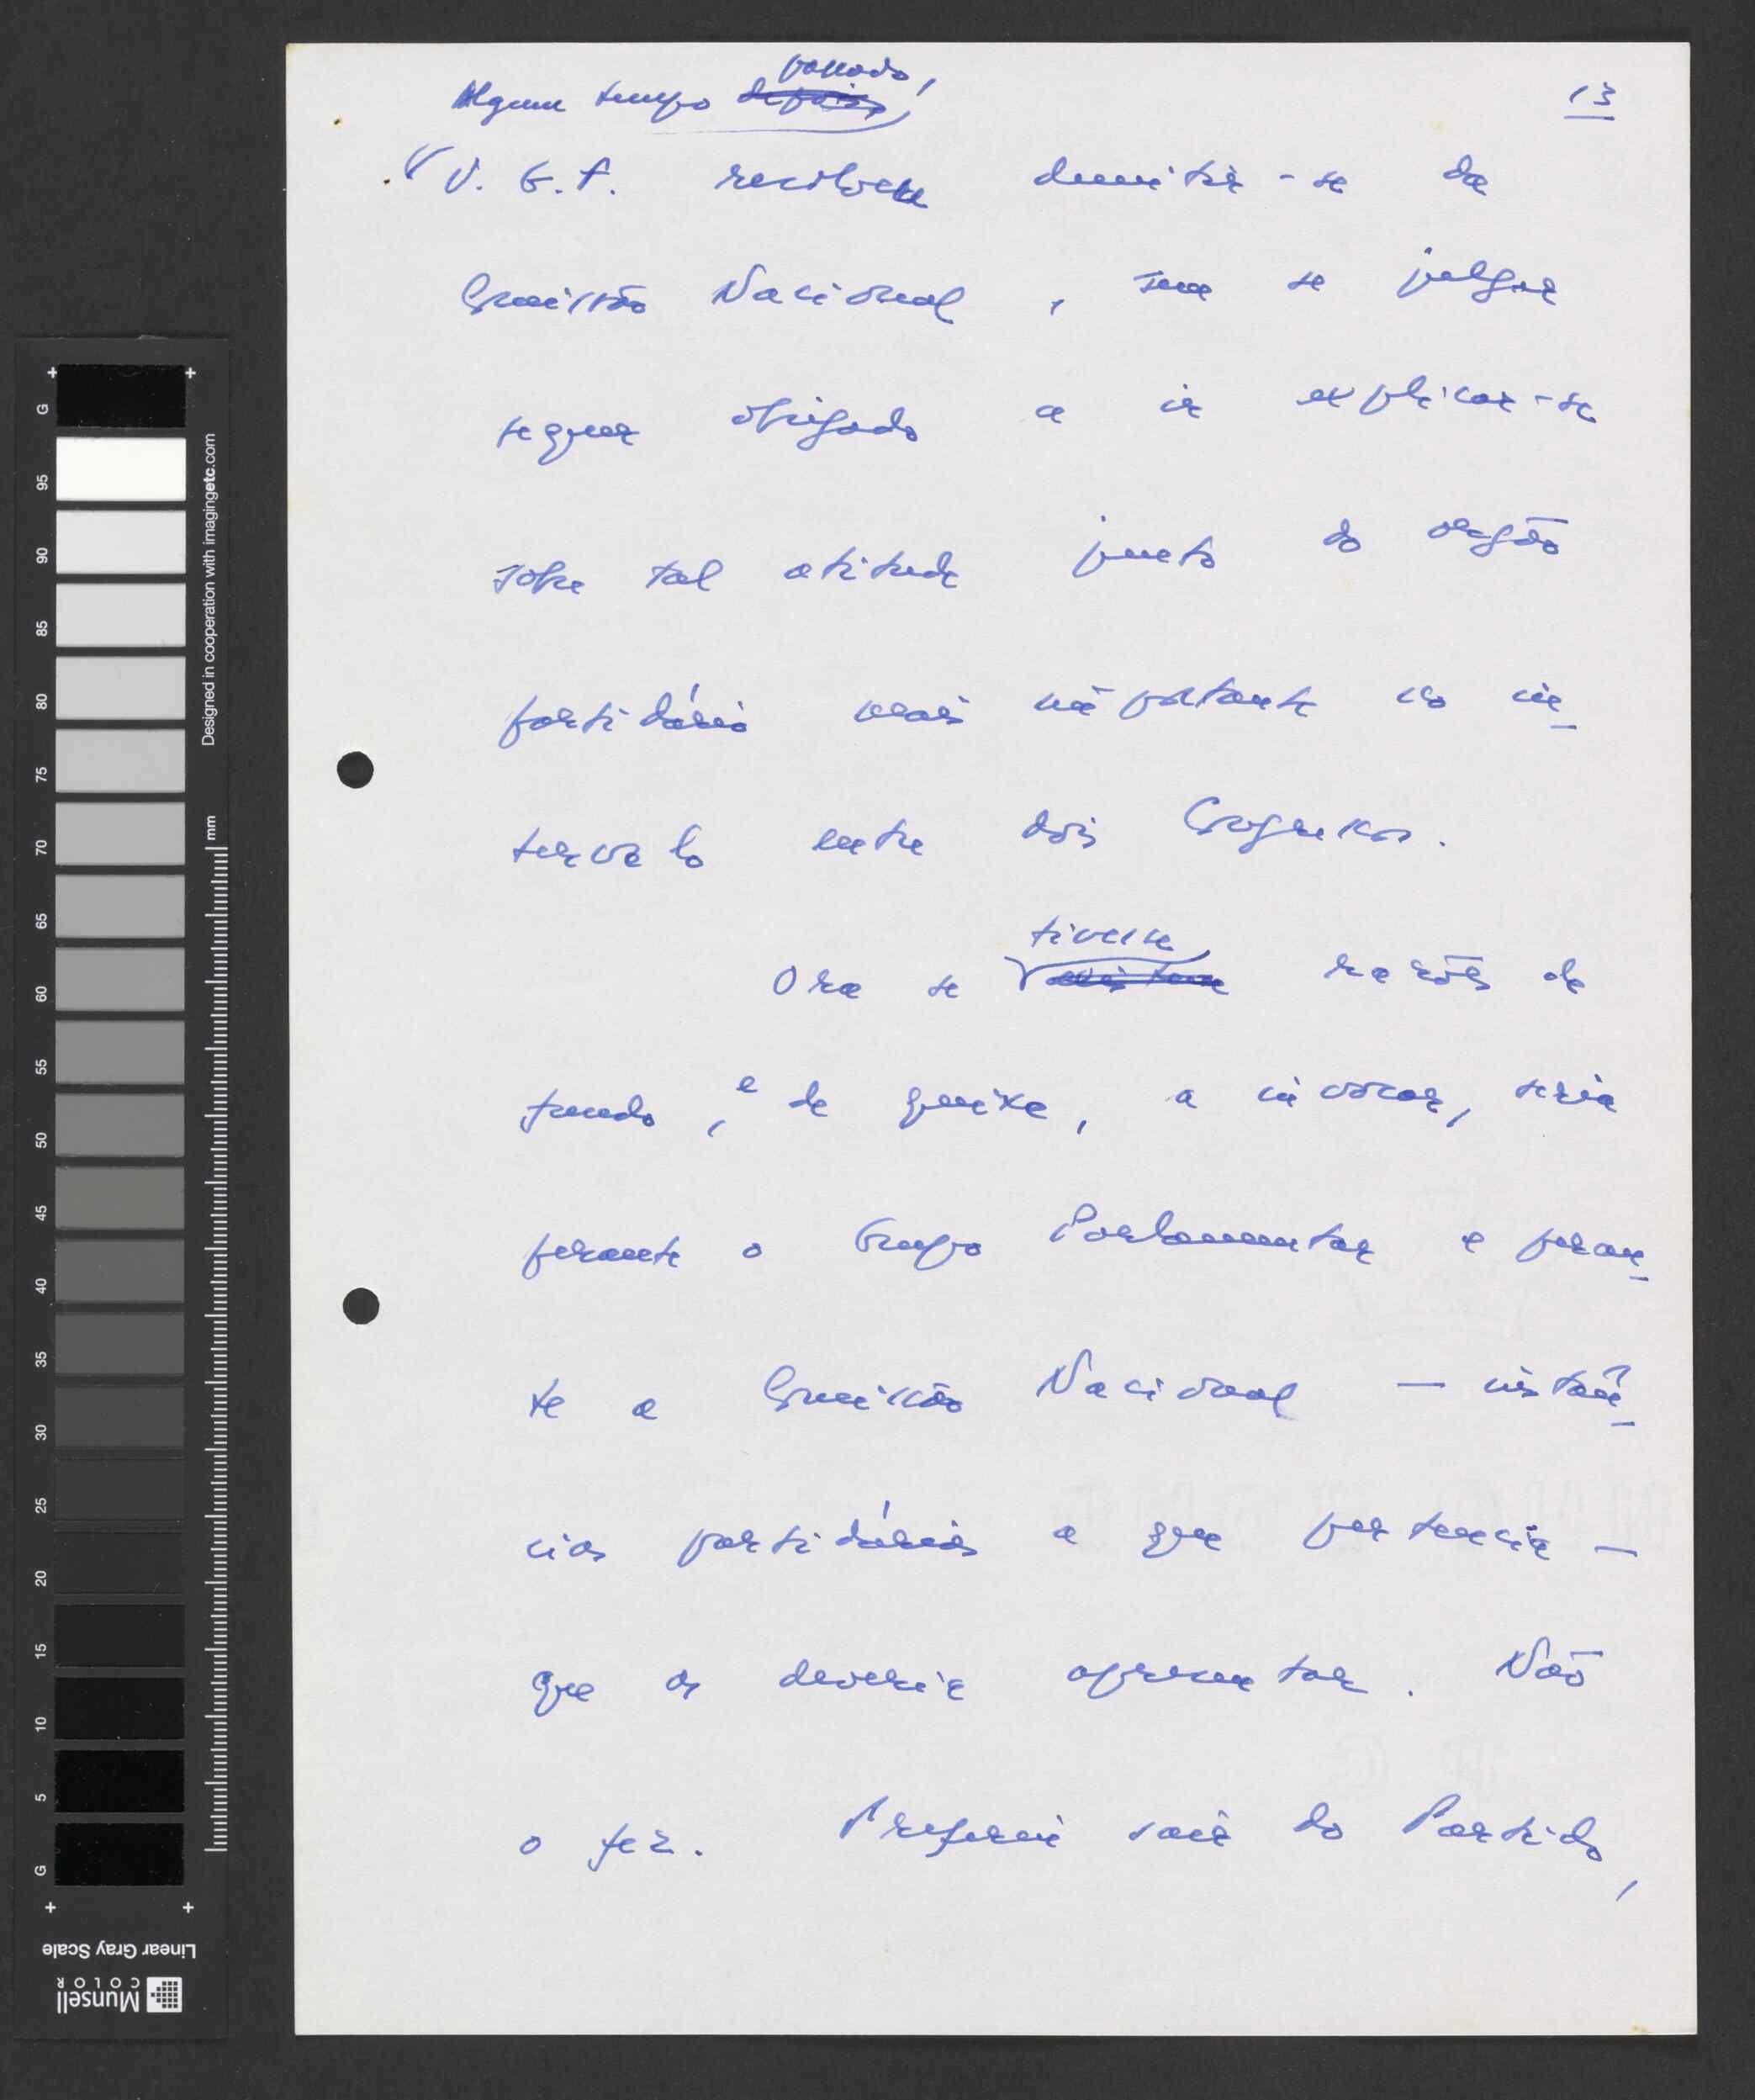 13
passado,
Algum tempo depois,
V. G. F. resolveu demitir-se da
Comissão Nacional, sem se julgar
sequer obrigado a ir explicar-se
sobre tal atitude junto do orgão
partidário mais importante no in-
tervalo entre dois Congressos.
tivesse
Ora se existem razões de
fundo, e de queixa, a invocar, seria
perante o Grupo Parlamentar e peran-
te a Comissão Nacional — instân-
cias partidárias a que pertencia —
que as deveria apresentar. Não
o fez. Preferiu sair do Partido,
G
95
90
85
80
75
70
65
60
55
50
45
40
35
30
25
20
15
10
5
G
mm
Designed in cooperation with imagingetc.com
Linear Gray Scale
Munsell
COLOR